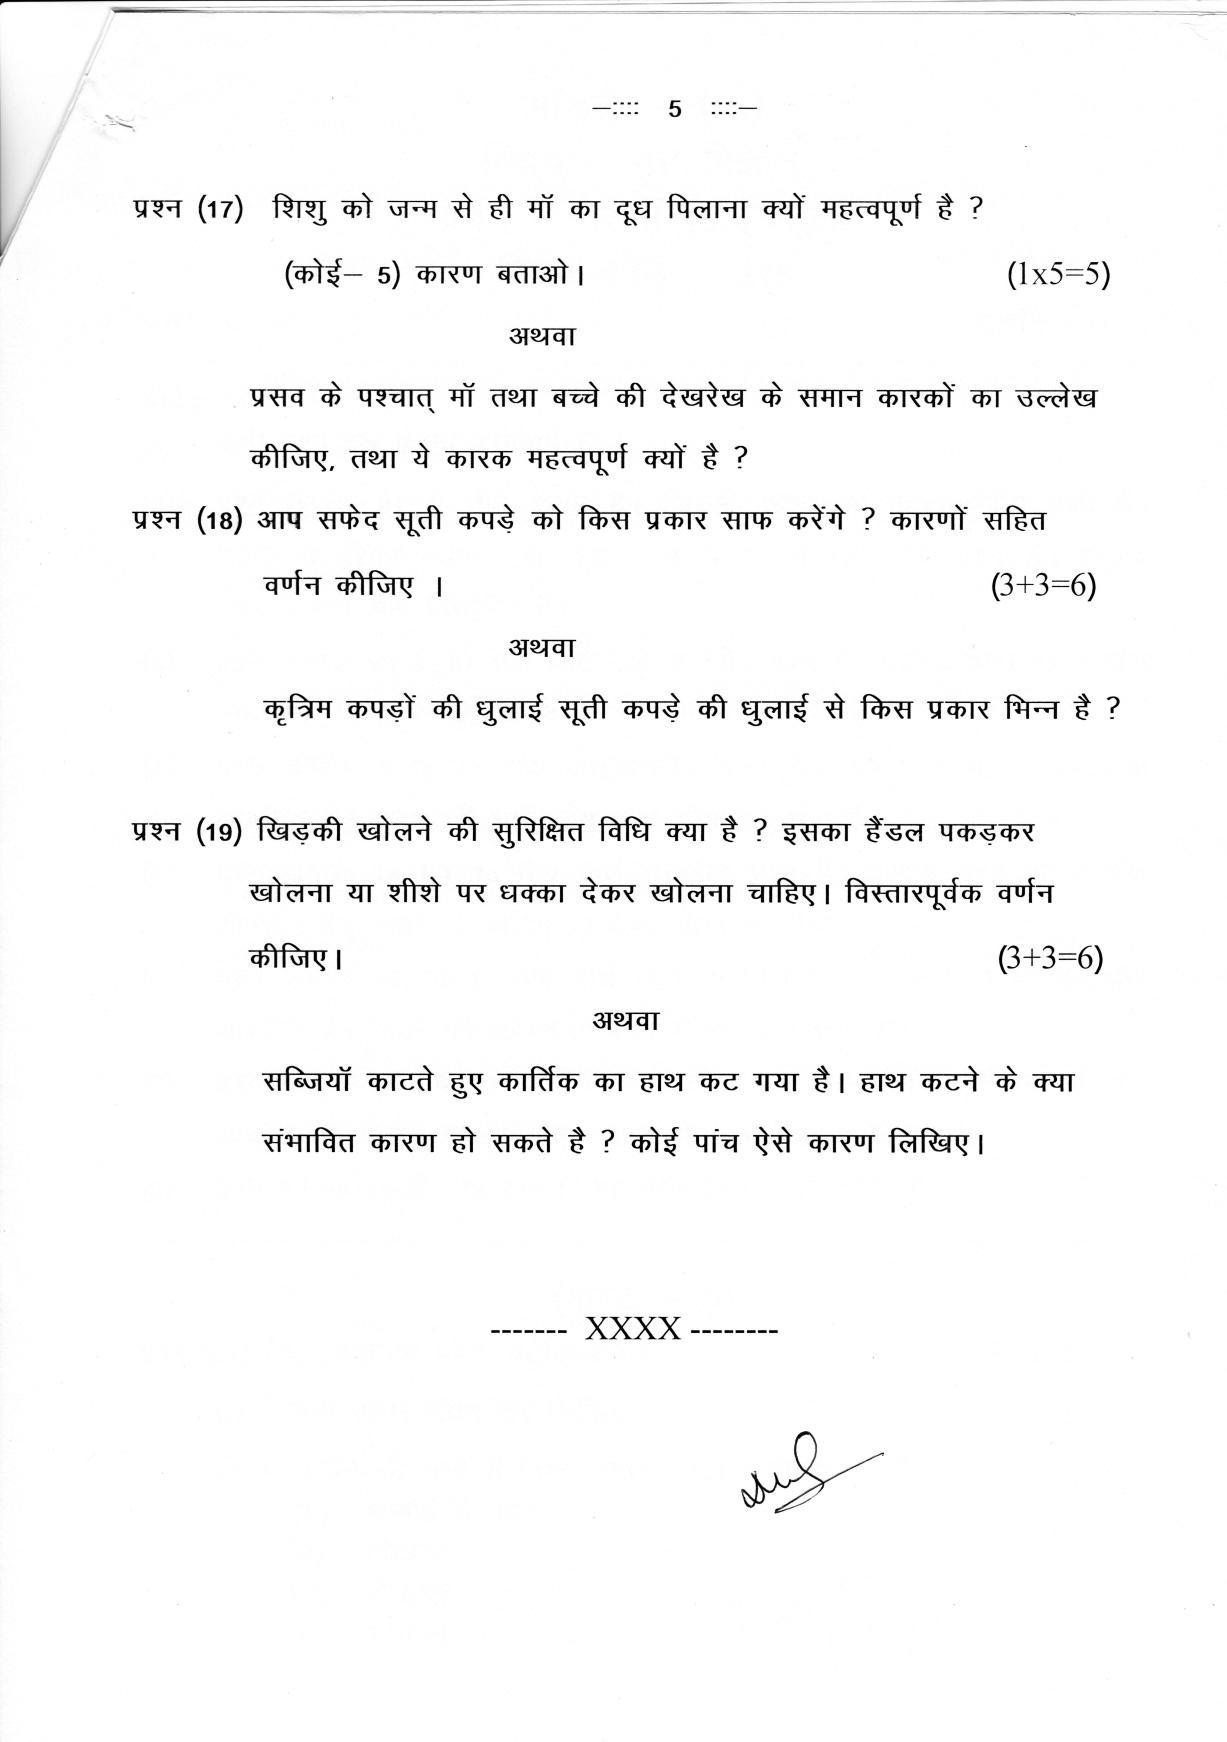 –:::: 5 ::::–
प्रश्न (17) शिशु को जन्म से ही मॉ का दूध पिलाना क्यों महत्वपूर्ण है ?
(कोई– 5) कारण बताओ। (1x5=5)
अथवा
प्रसव के पश्चात् मॉ तथा बच्चे की देखरेख के समान कारकों का उल्लेख
कीजिए, तथा ये कारक महत्वपूर्ण क्यों है ?
प्रश्न (18) आप सफेद सूती कपड़े को किस प्रकार साफ करेंगे ? कारणों सहित
वर्णन कीजिए । (3+3=6)
अथवा
कृत्रिम कपड़ों की धुलाई सूती कपड़े की धुलाई से किस प्रकार भिन्न है ?
प्रश्न (19) खिड़की खोलने की सुरिक्षित विधि क्या है ? इसका हैंडल पकड़कर
खोलना या शीशे पर धक्का देकर खोलना चाहिए। विस्तारपूर्वक वर्णन
कीजिए। (3+3=6)
अथवा
सब्जियॉ काटते हुए कार्तिक का हाथ कट गया है। हाथ कटने के क्या
संभावित कारण हो सकते है ? कोई पांच ऐसे कारण लिखिए।
------- XXXX --------